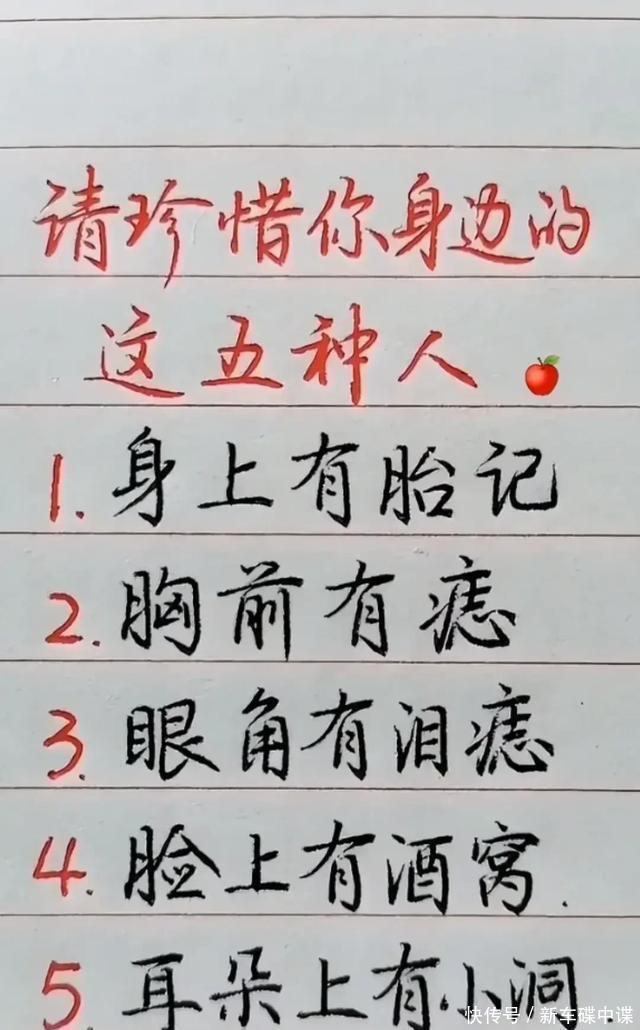 请珍惜你身边的
这五种人
1.身上有胎记
2.胸前有痣
3.眼角有泪痣
4.脸上有酒窝.
5.耳朵上有小洞.
快传号/新车碟中谍